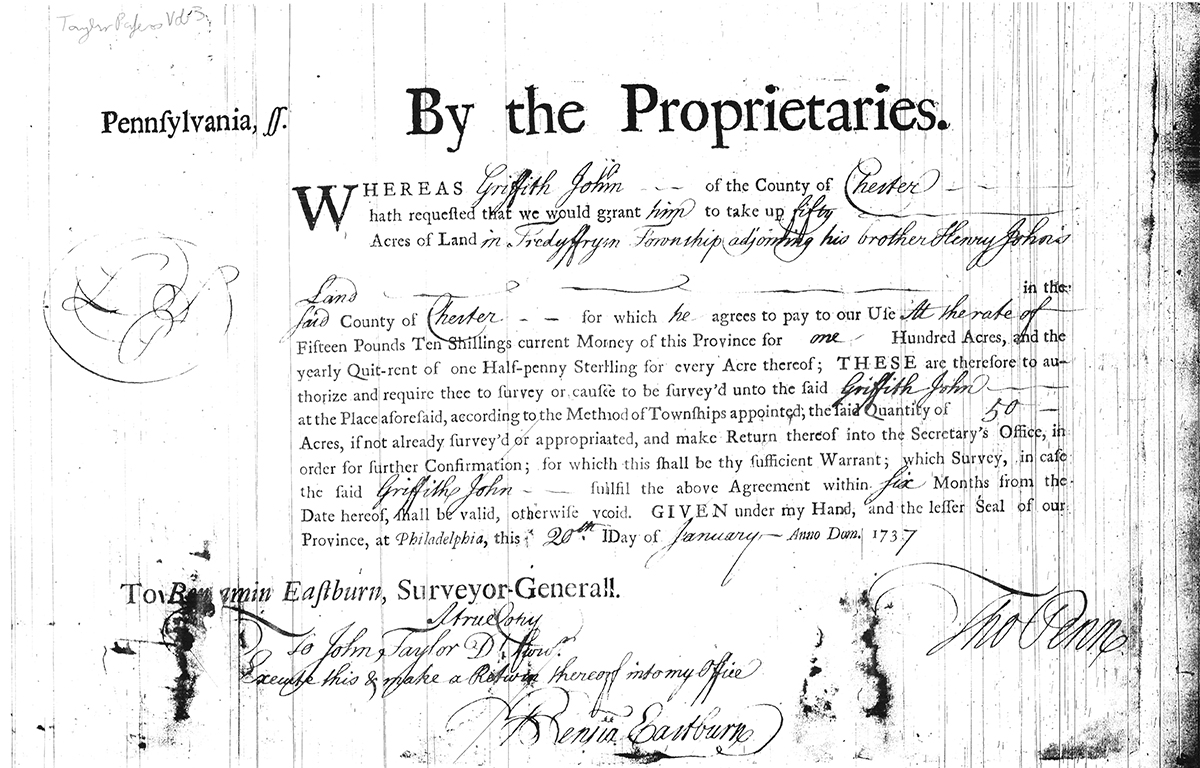 Taylor Papers Vol 3.
Pennſylvania, ſſ.
By the Proprietaries.
WHEREAS Griffith John -- of the County of Chester --
hath requeſted that we would grant him to take up fifty
Acres of Land in Tredyffryn Township adjoining his brother Henry John's
Land in the
said County of Chester -- for which he agrees to pay to our Uſe At the rate of
Fifteen Pounds Ten Shillings current Money of this Province for one Hundred Acres, and the
yearly Quit-rent of one Half-penny Sterling for every Acre thereof; THESE are therefore to au-
thorize and require thee to ſurvey or cauſe to be ſurvey'd unto the ſaid Griffith John
at the Place aforeſaid, according to the Method of Townſhips appointed; the ſaid Quantity of 50
Acres, if not already ſurvey'd or appropriated, and make Return thereof into the Secretary's Office, in
order for further Confirmation; for which this ſhall be thy ſufficient Warrant; which Survey, in caſe
the ſaid Griffith John -- fulfil the above Agreement within six Months from the
Date hereof, ſhall be valid, otherwiſe void. GIVEN under my Hand, and the leſſer Seal of our
Province, at Philadelphia, this 20th Day of January Anno Dom. 1737
L S
To Benjamin Eaſtburn, Surveyor-Generall.
A true Copy
Tho Penn
To John Taylor D. Surv.r
Execute this & make a Return thereof into my Office
Benjin Eastburn